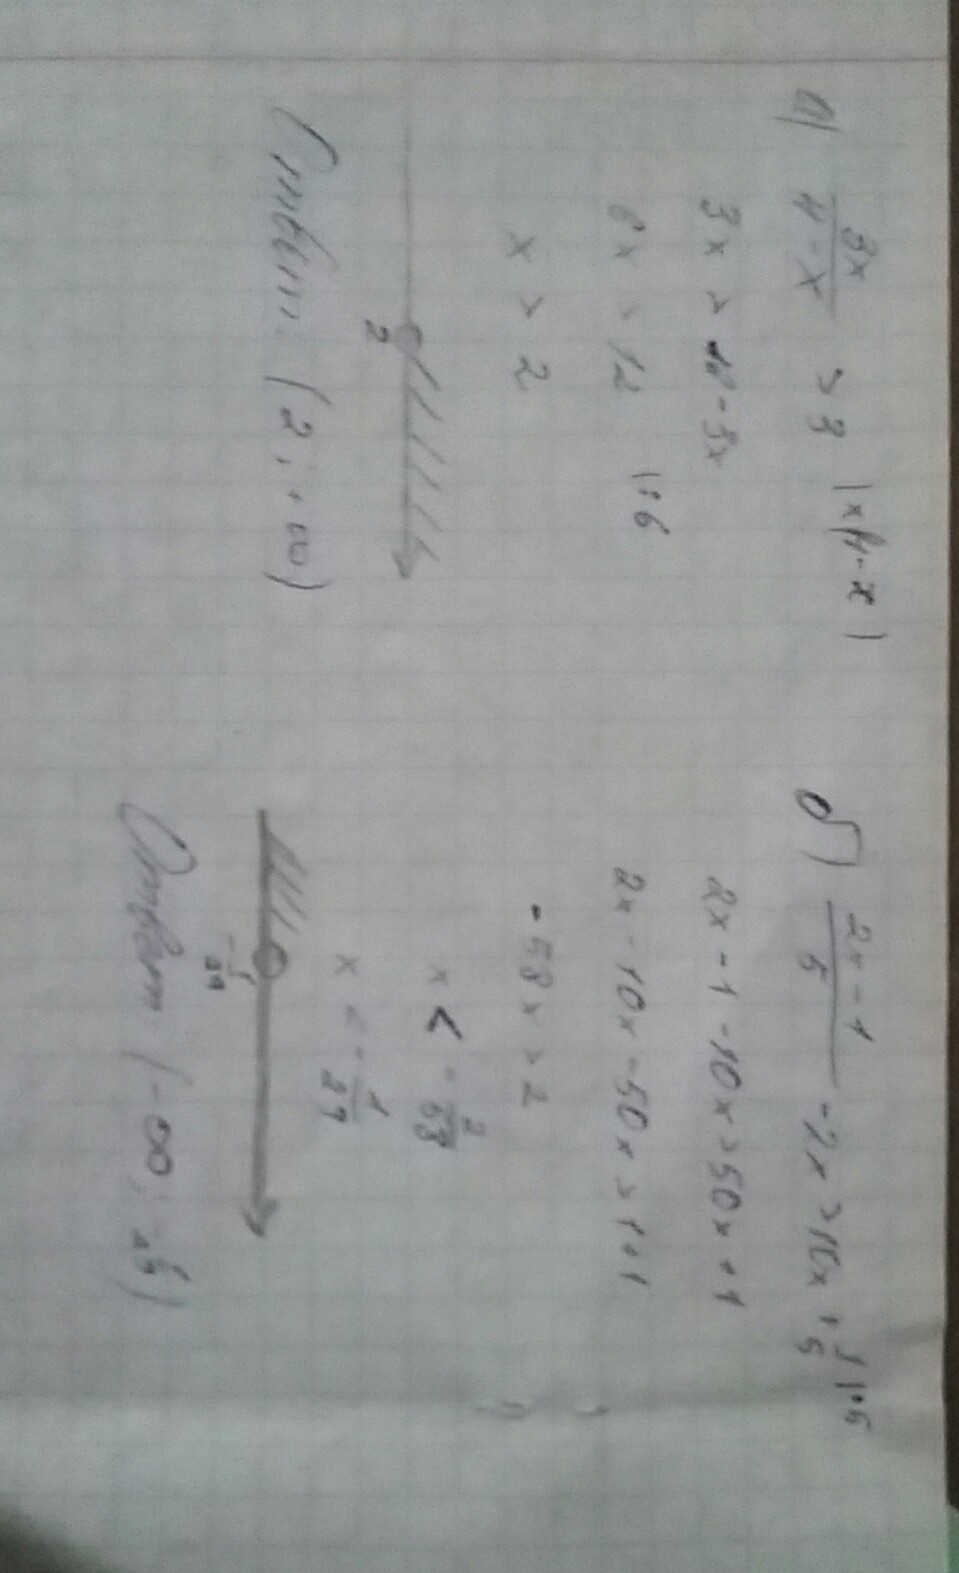 а) 3x/4-x > 3 |x(4-x)
3x > 12-3x
6x > 12 |:6
x > 2
2
Ответ: (2; +∞)
б) 2x-1/5 -2x > 10x + 1/5 |·5
2x -1 -10x > 50x +1
2x -10x -50x > 1+1
-58x > 2
x < -2/58
x < -1/29
-1/29
Ответ (-∞;